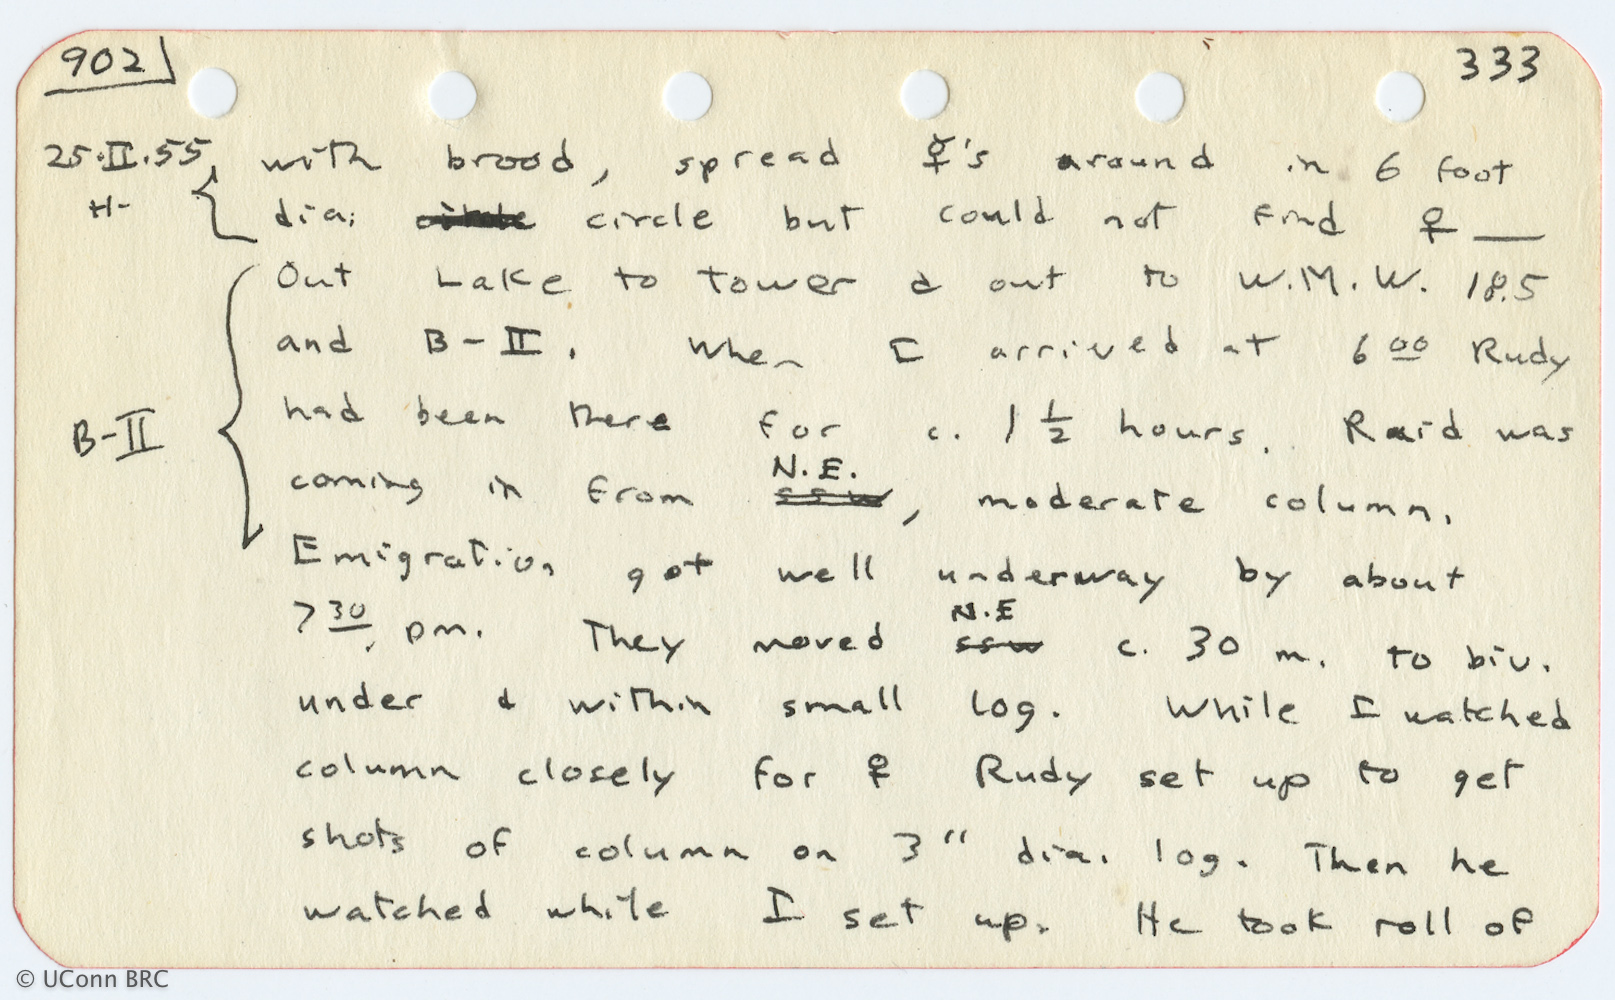 902 333
25.II.55, with brood, spread ☿'s around in 6 foot
H- dia; circle but could not find ♀ __
Out Lake to tower & out to W.M.W. 18.5
and B-II. When I arrived at 6 00 Rudy
B-II had been there for c. 1 1/2 hours. Raid was
N.E.
coming in from ssw, moderate column.
Emigration got well underway by about
N.E
7 30, pm. They moved ssw c. 30 m. to biv.
under & within small log. While I watched
column closely for ♀ Rudy set up to get
shots of column on 3" dia. log. Then he
watched while I set up. He took roll of
© UConn BRC